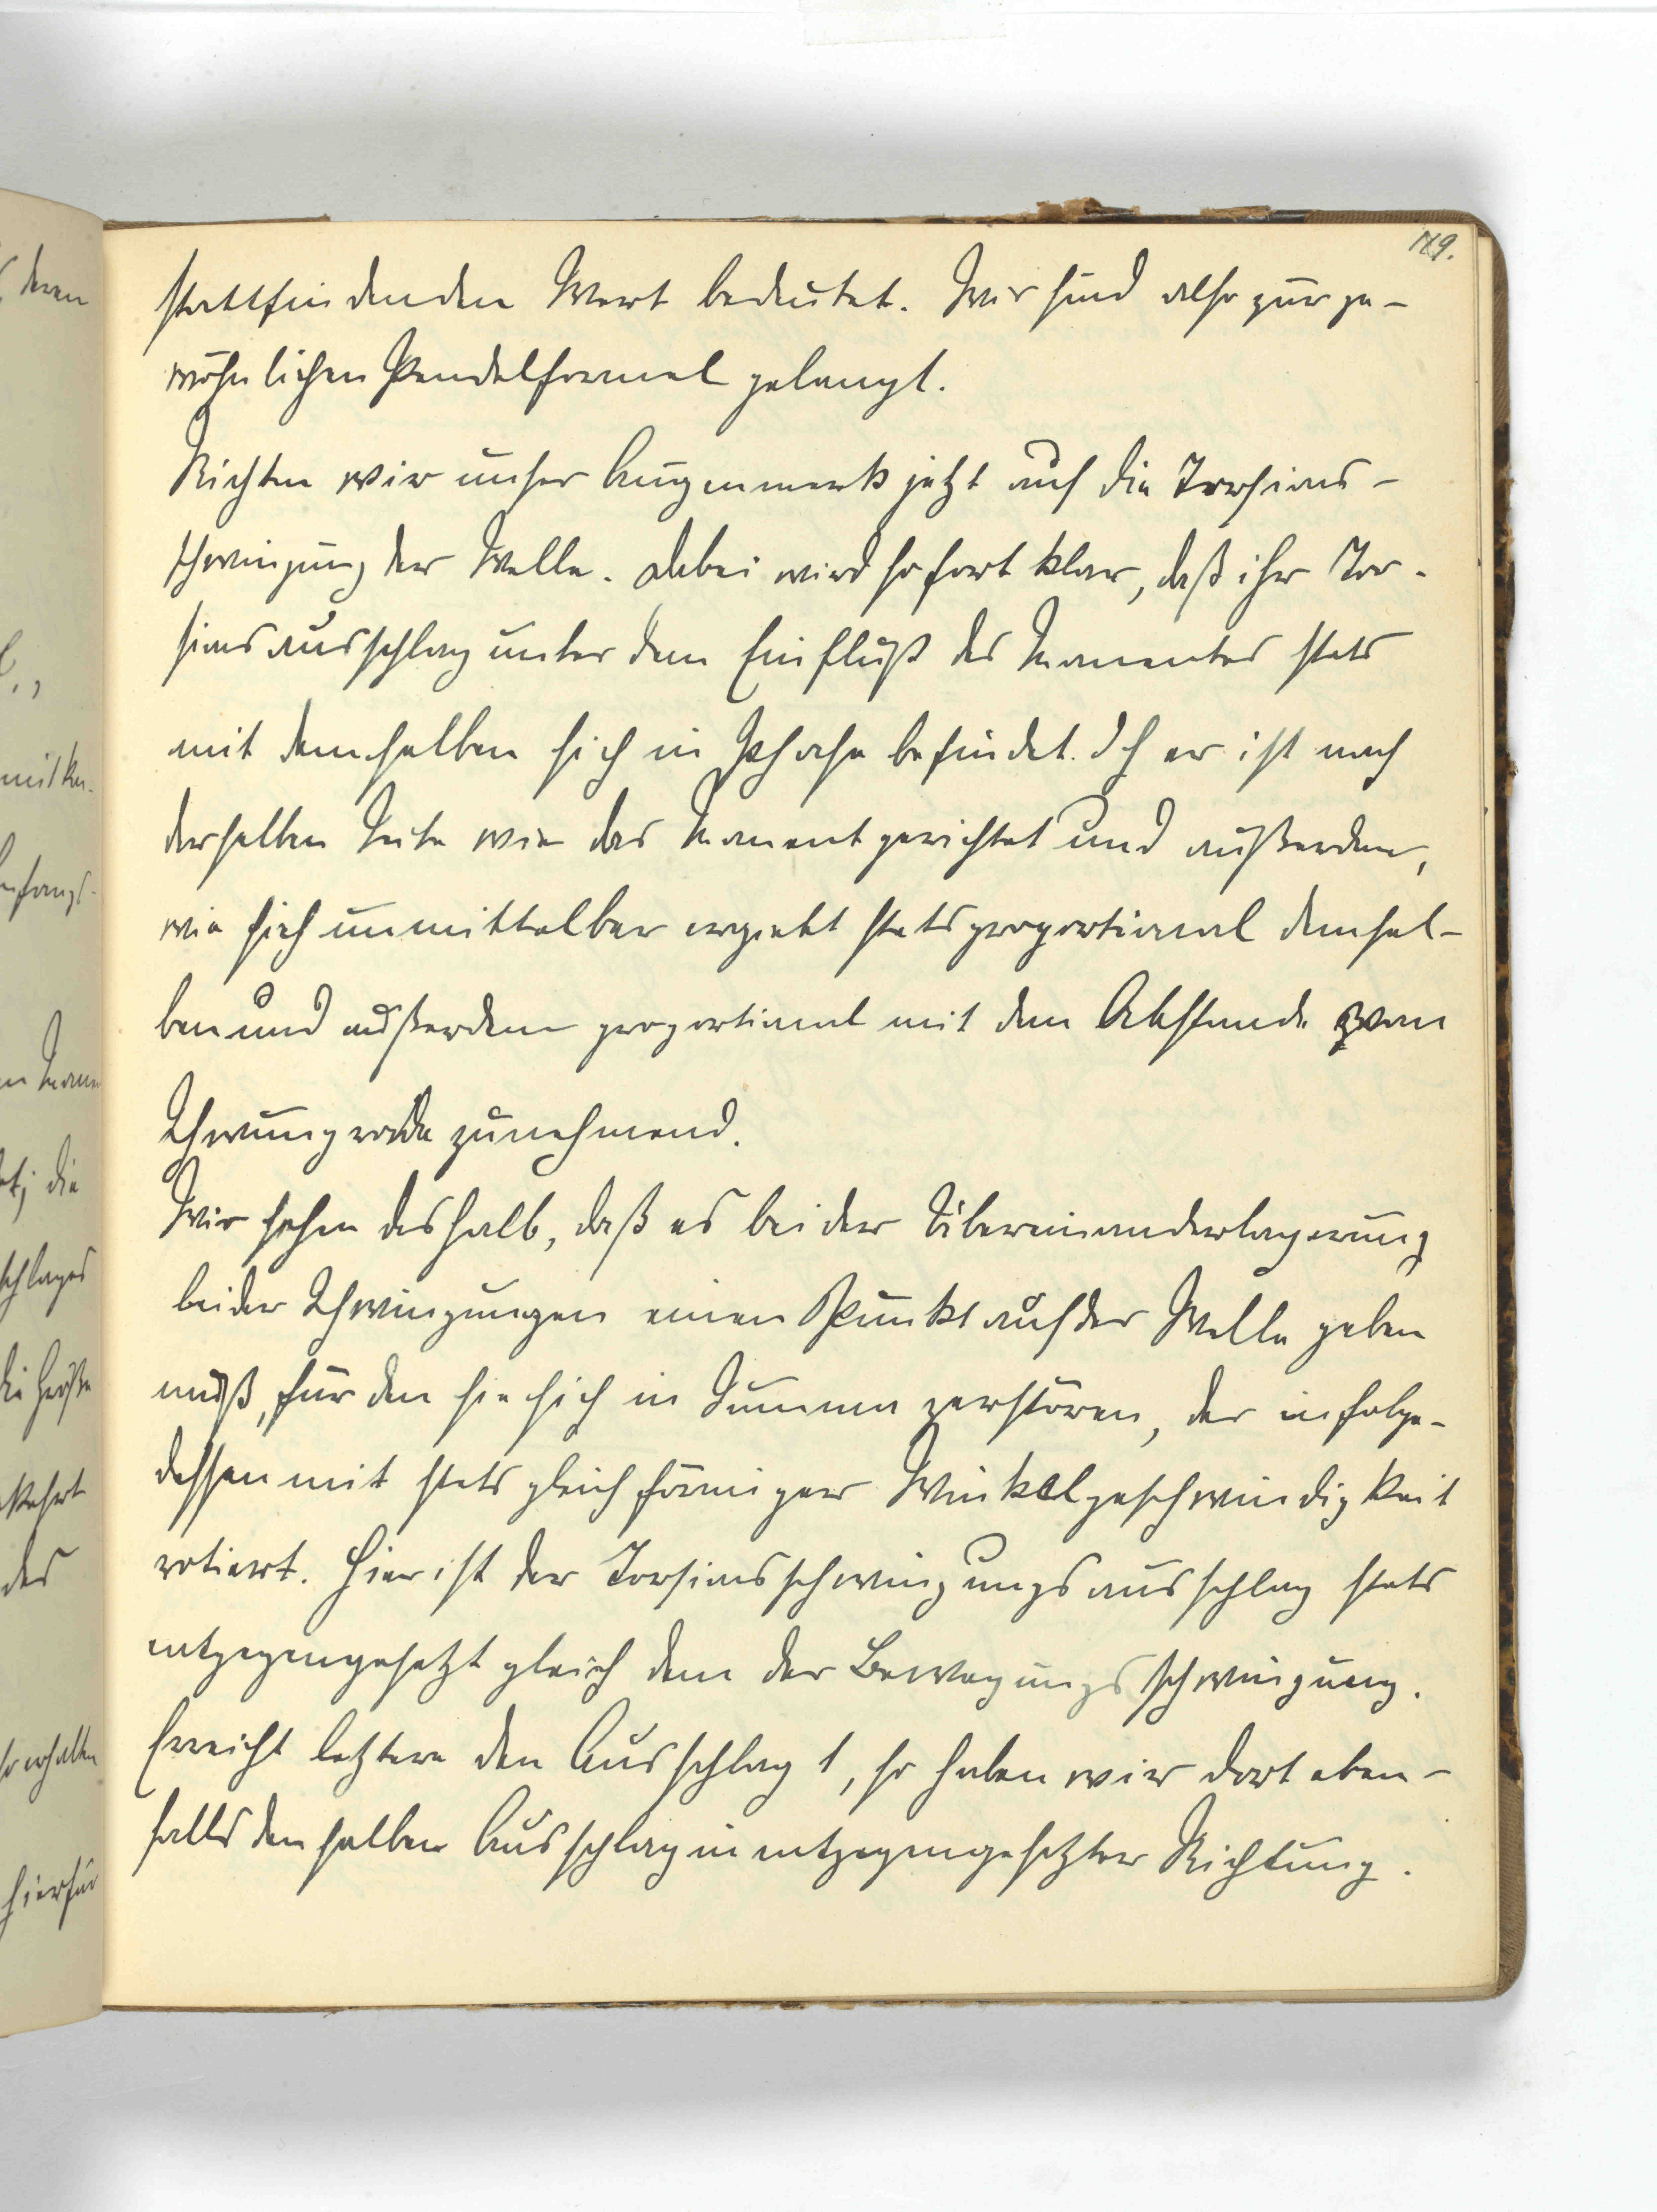 119.
stattfindenden Wert bedeutet. Wir sind also zur ge-
wöhnlichen Pendelformel gelangt.
Richten wir unser Augenmerk jetzt auf die Torsions-
schwingung der Welle. Dabei wird sofort klar, daß ihr Tor-
sionsausschlag unter dem Einfluß des Momentes stets
mit demselben sich in Phase befindet. Dh er ist nach
derselben Seite wie das Moment gerichtet und außerdem,
wie sich unmittelbar ergiebt stets proportional demsel-
ben und außerdem proportional mit dem Abstande vom
Schwungrade zunehmend.
Wir sehen deshalb, daß es bei der Übereinanderlagerung
beider Schwingungen einen Punkt auf der Welle geben
muß, für den sie sich in Summa zerstören, der infolge-
dessen mit stets gleichförmiger Winkelgeschwindigkeit
rotiert. Hier ist der Torsionsschwingungsausschlag stets
entgegengesetzt gleich dem der Bewegungsschwingung.
Erreicht letztere den Ausschlag 1, so haben wir dort eben-
falls denselben Ausschlag in entgegengesetzter Richtung.